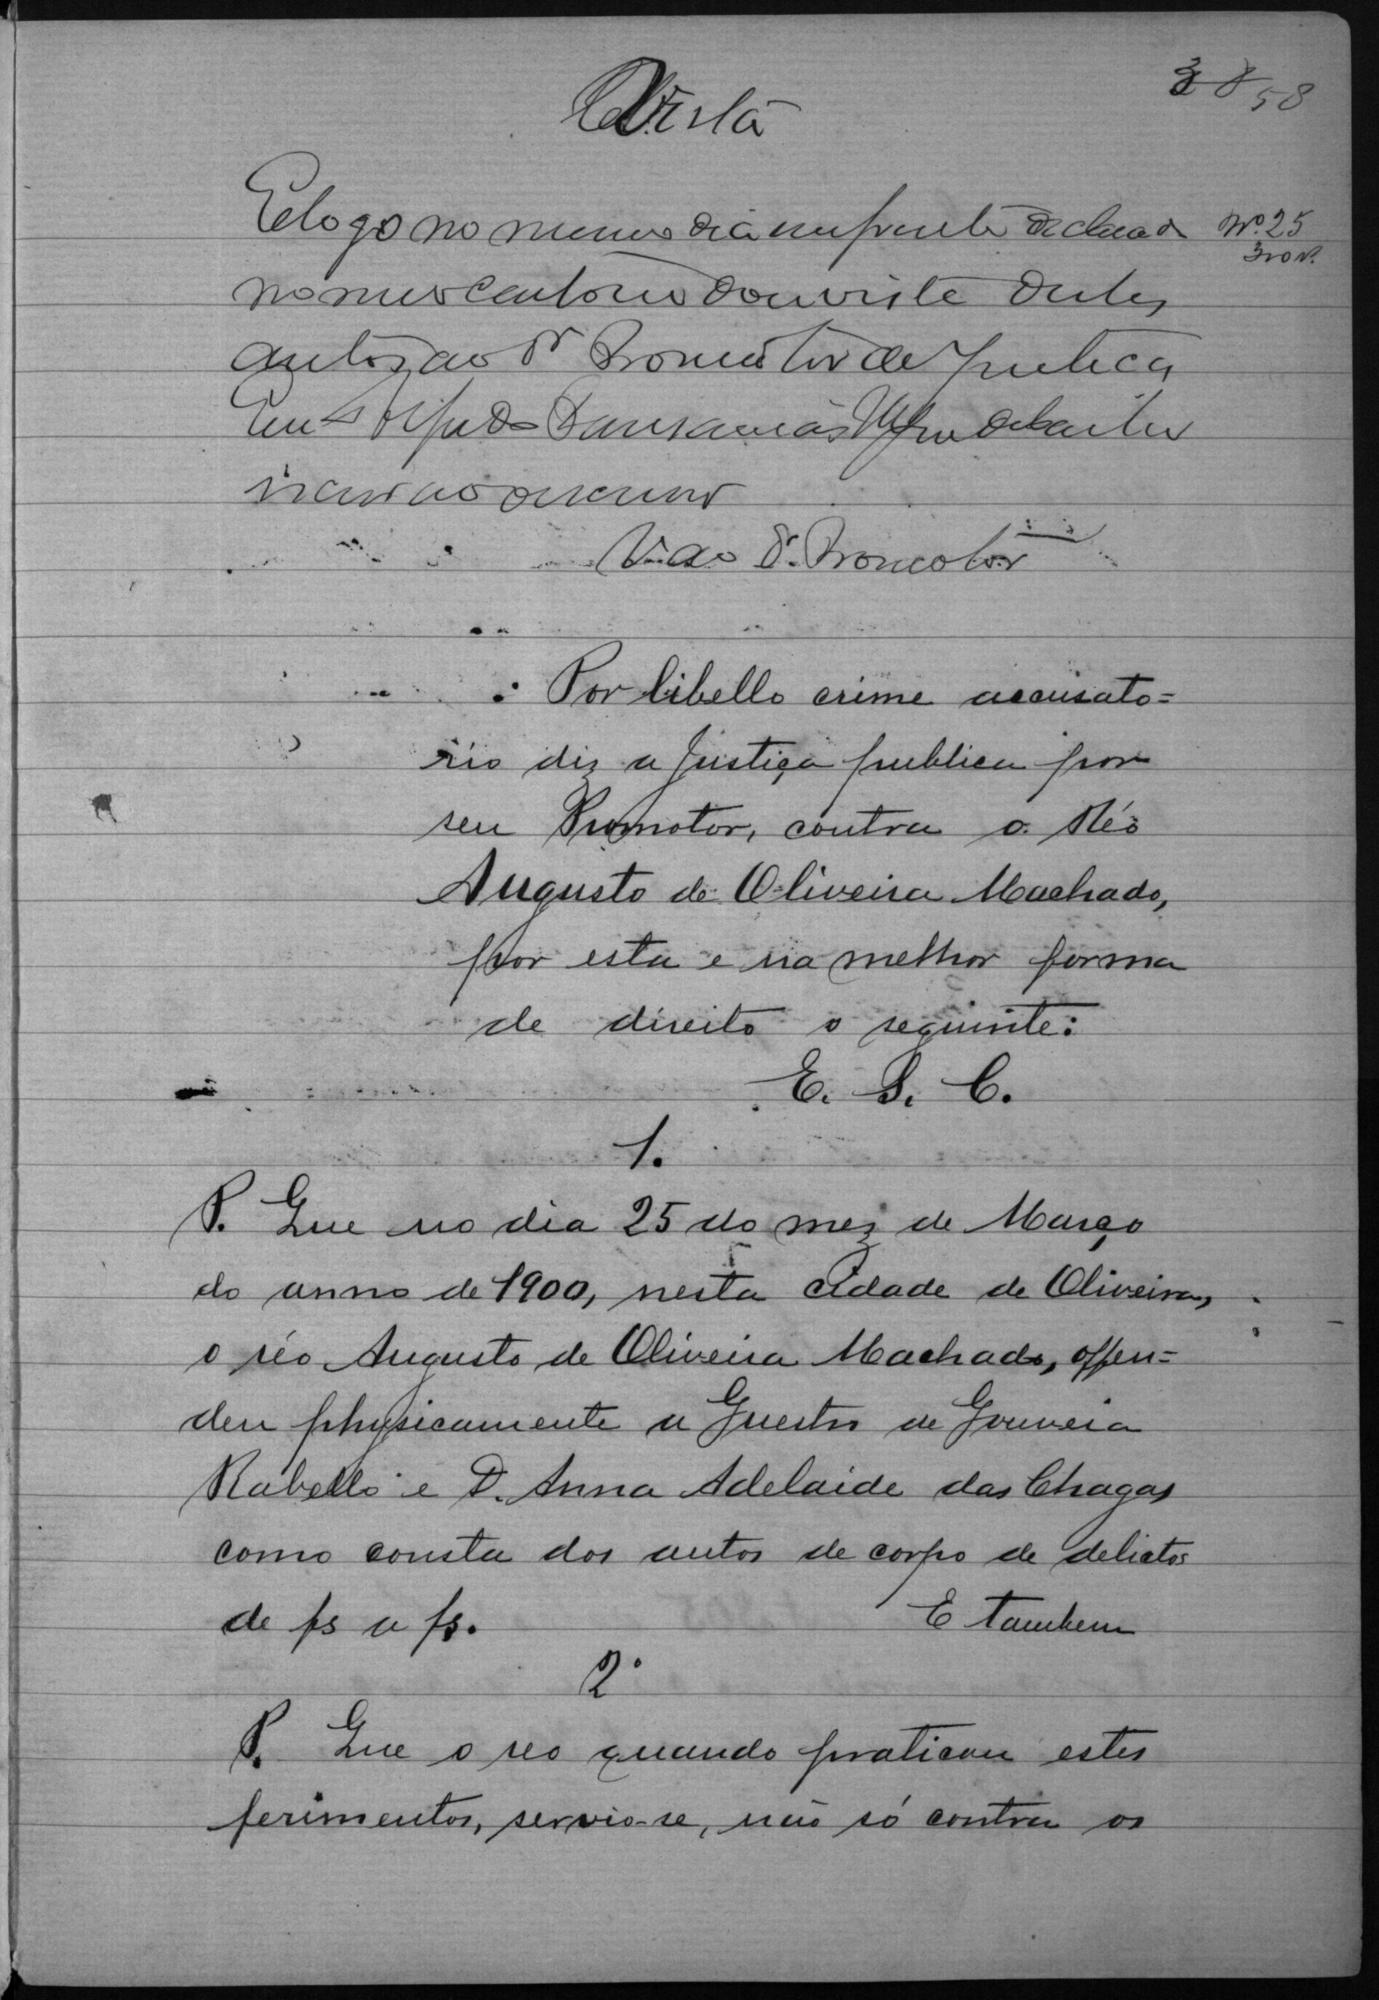 38 58
Vista
E logo no mesmo dia em frente declarado
Nº 25
no meu cartorio dou vista destes
autos ao Dr Promotor de Justiça
Eu
escrivão o escrevi
V. ao Dr. Promotor
Por libello crime accusato=
rio diz a Justiça publica por
seu Promotor, contra o Réo
Augusto de Oliveira Machado,
por esta e na melhor forma
de direito o seguinte:
E. S. C.
1.
P. Que no dia 25 do mez de Março
do anno de 1900, nesta cidade de Oliveira,
o réo Augusto de Oliveira Machado, offen=
deu physicamente a de Gouveia
Rabello e D. Anna Adelaide das Chagas
como consta dos autos de corpo de delictos
de fs a fs. E tambem
2º
P. Que o reo quando praticou estes
ferimentos, servio-se, não só contra os